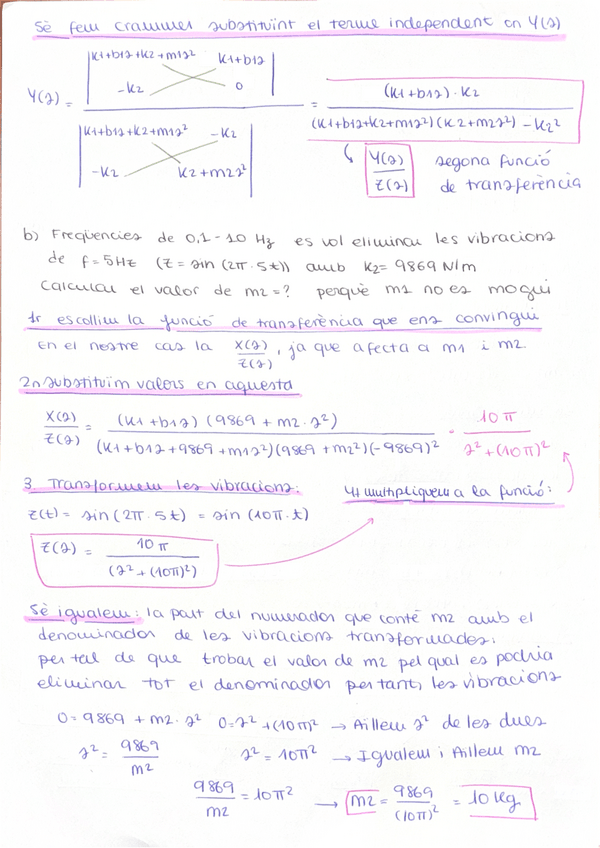 5è fem crammer substituint el terme independent en Y(s)
Y(s) = |k1+b1s+k2+m1s² k1+b1s| |-k2 0| / |k1+b1s+k2+m1s² -k2| |-k2 k2+m2s²| = (k1+b1s)·k2 / (k1+b1s+k2+m1s²)(k2+m2s²) - k2²
Y(s)/Z(s) segona funció
de transferència
b) Freqüencies de 0,1-10 Hz es vol eliminar les vibracions
de f=5Hz (z = sin (2π·5t)) amb k2= 9869 N/m
Calcular el valor de m2=? perquè m1 no es mogui
1r escollim la funció de transferència que ens convingui
En el nostre cas la X(s)/Z(s), ja que afecta a m1 i m2.
2n substituim valors en aquesta
X(s)/Z(s) = (k1+b1s) (9869 + m2·s²) / (k1+b1s+9869+m1s²)(9869+m2²)(-9869)² · 10π / s²+(10π)²
3. Transformem les vibracions:
4t multipliquem a la funció:
z(t) = sin (2π·5t) = sin (10π·t)
Z(s) = 10π / (s²+(10π)²)
5è igualem: la part del numerador que conté m2 amb el
denominador de les vibracions transformades:
per tal de que trobar el valor de m2 pel qual es podria
eliminar tot el denominador per tant, les vibracions
0=9869 + m2·s² 0=s²+(10π)² → Aïllem s² de les dues
s² = 9869/m2 s² = 10π² → Igualem i Aïllem m2
9869/m2 = 10π² → m2 = 9869/(10π)² = 10 kg